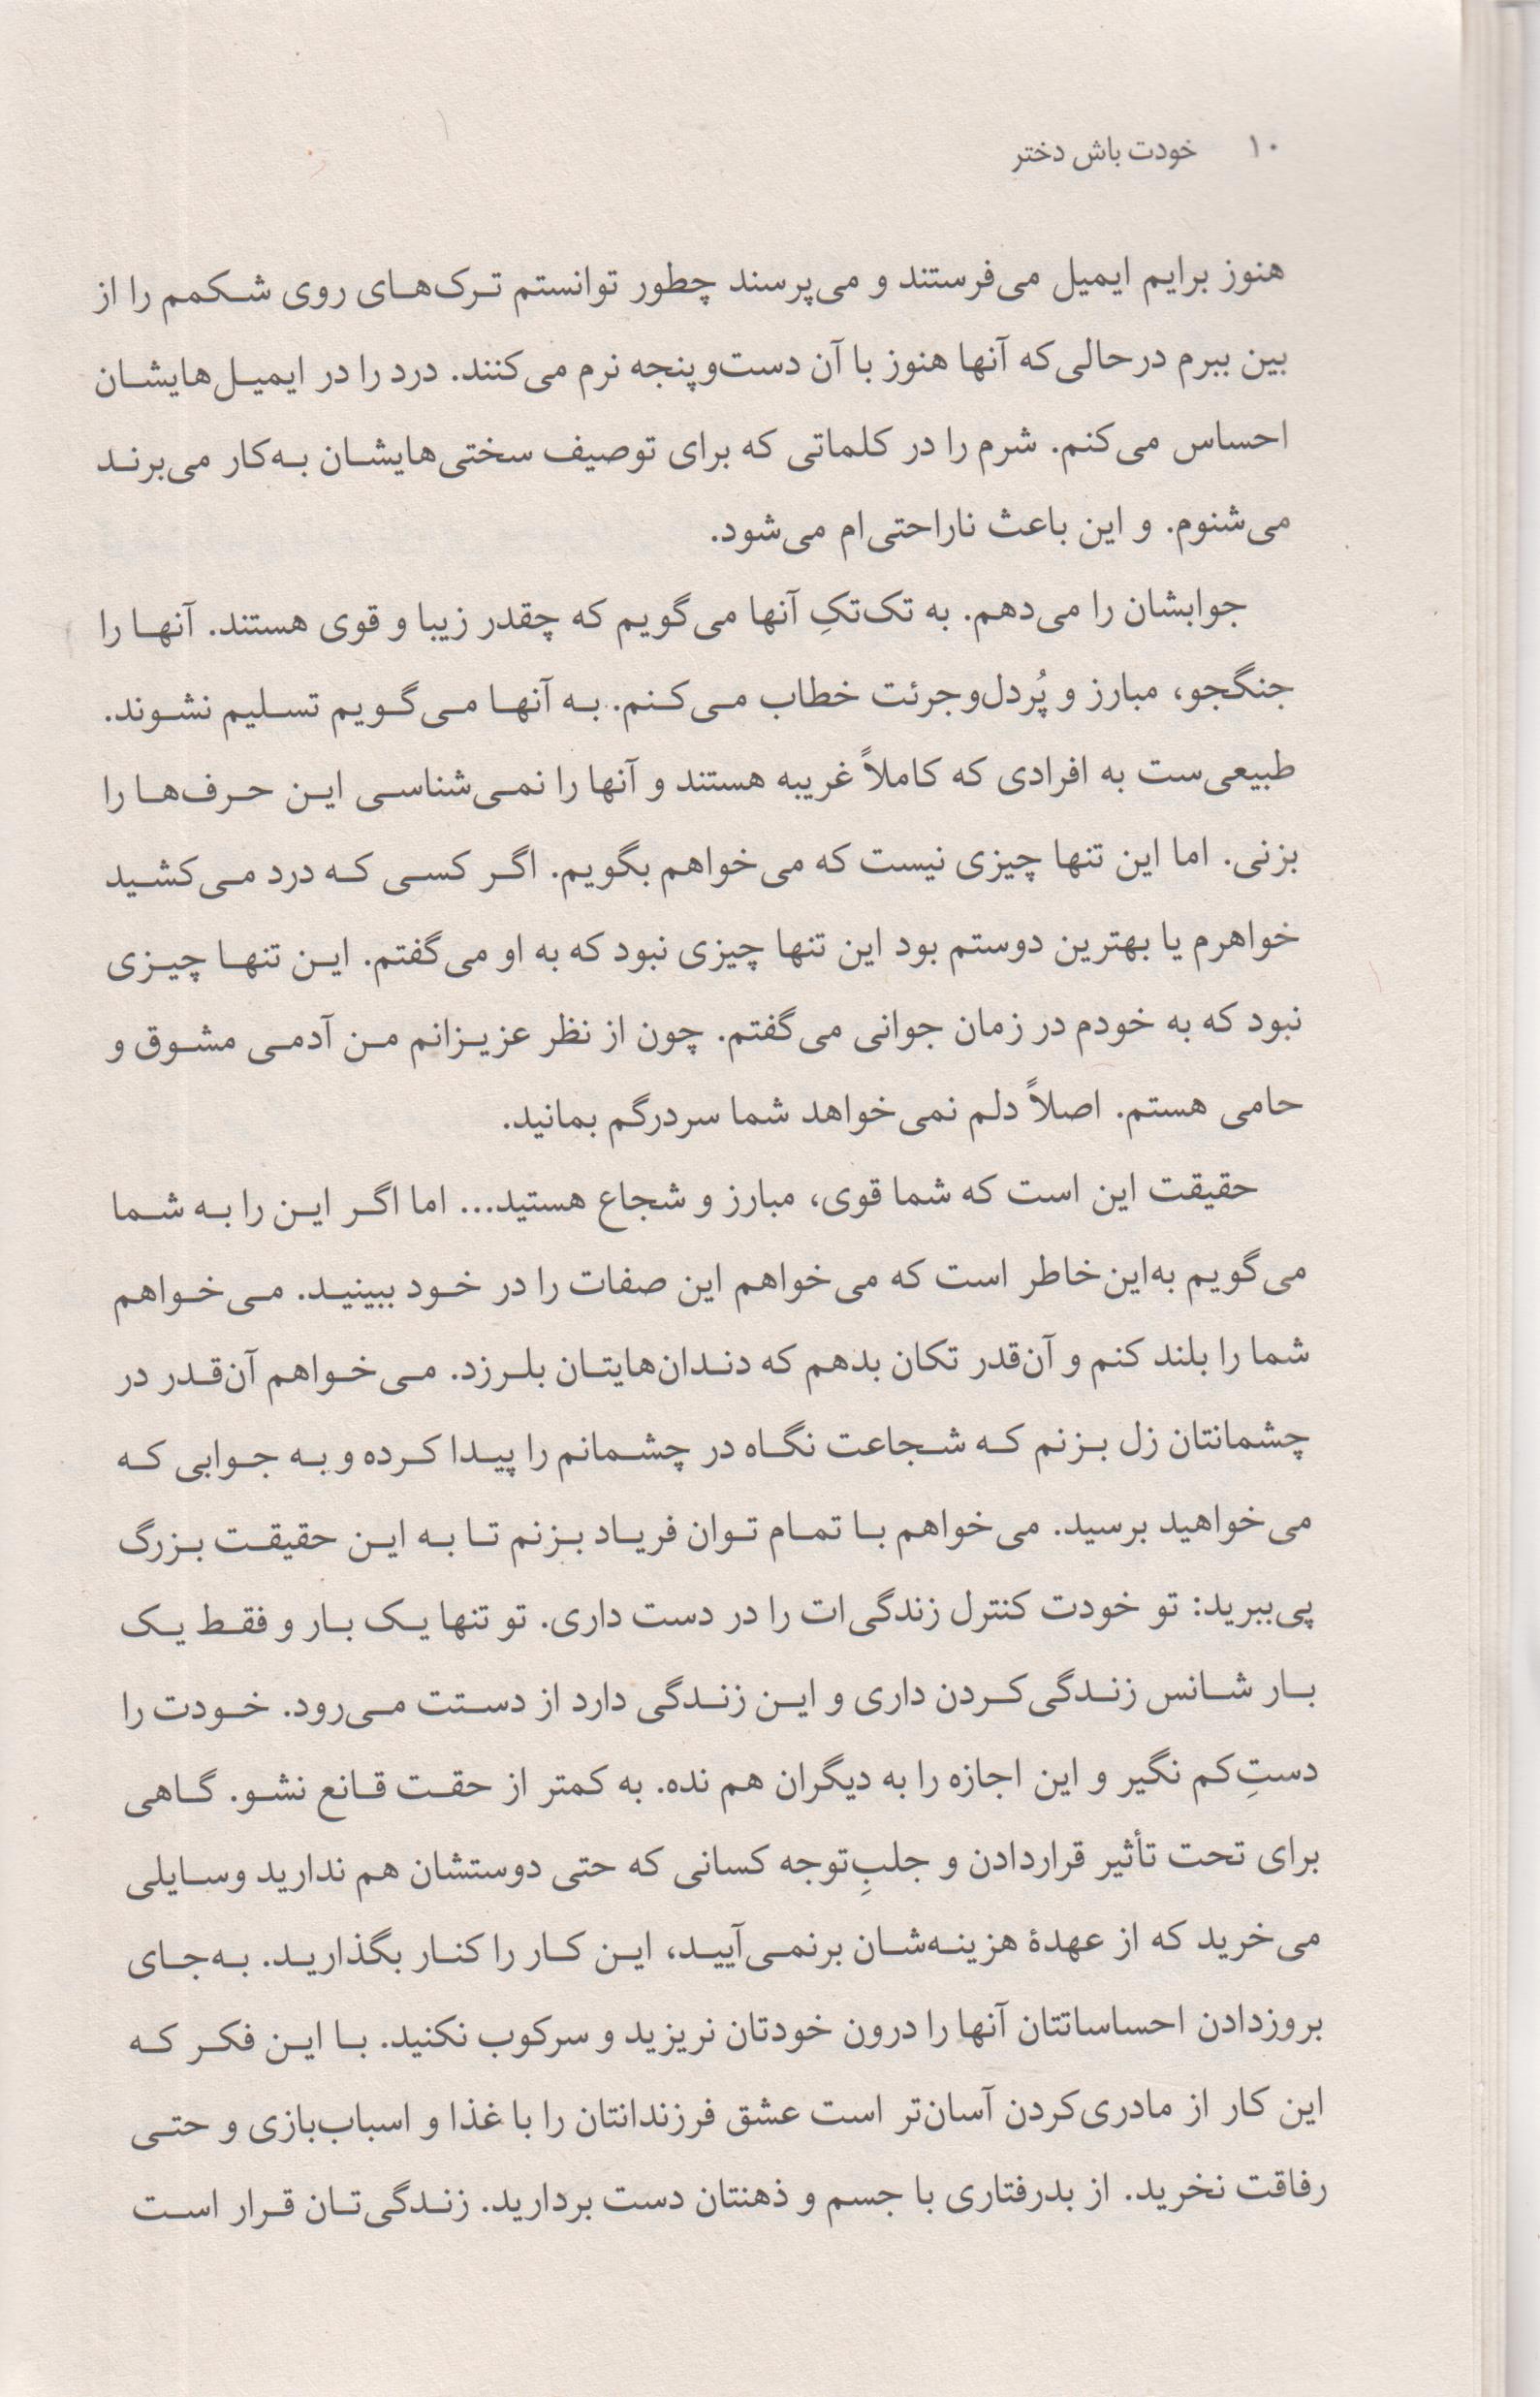 ۱۰ خودت باش دختر
هنوز برایم ایمیل می‌فرستند و می‌پرسند چطور توانستم ترک‌های روی شکمم را از
بین ببرم درحالی‌که آنها هنوز با آن دست‌وپنجه نرم می‌کنند. درد را در ایمیل‌هایشان
احساس می‌کنم. شرم را در کلماتی که برای توصیف سختی‌هایشان به‌کار می‌برند
می‌شنوم. و این باعث ناراحتی‌ام می‌شود.
جوابشان را می‌دهم. به تک‌تکِ آنها می‌گویم که چقدر زیبا و قوی هستند. آنها را
جنگجو، مبارز و پُردل‌وجرئت خطاب می‌کنم. به آنها می‌گویم تسلیم نشوند.
طبیعی‌ست به افرادی که کاملاً غریبه هستند و آنها را نمی‌شناسی این حرف‌ها را
بزنی. اما این تنها چیزی نیست که می‌خواهم بگویم. اگر کسی که درد می‌کشید
خواهرم یا بهترین دوستم بود این تنها چیزی نبود که به او می‌گفتم. این تنها چیزی
نبود که به خودم در زمان جوانی می‌گفتم. چون از نظر عزیزانم من آدمی مشوق و
حامی هستم. اصلاً دلم نمی‌خواهد شما سردرگم بمانید.
حقیقت این است که شما قوی، مبارز و شجاع هستید... اما اگر این را به شما
می‌گویم به‌این‌خاطر است که می‌خواهم این صفات را در خود ببینید. می‌خواهم
شما را بلند کنم و آن‌قدر تکان بدهم که دندان‌هایتان بلرزد. می‌خواهم آن‌قدر در
چشمانتان زل بزنم که شجاعت نگاه در چشمانم را پیدا کرده و به جوابی که
می‌خواهید برسید. می‌خواهم با تمام توان فریاد بزنم تا به این حقیقت بزرگ
پی‌ببرید: تو خودت کنترل زندگی‌ات را در دست داری. تو تنها یک بار و فقط یک
بار شانس زندگی‌کردن داری و این زندگی دارد از دستت می‌رود. خودت را
دستِ‌کم نگیر و این اجازه را به دیگران هم نده. به کمتر از حقت قانع نشو. گاهی
برای تحت تأثیر قراردادن و جلبِ‌توجه کسانی که حتی دوستشان هم ندارید وسایلی
می‌خرید که از عهدهٔ هزینه‌شان برنمی‌آیید، این کار را کنار بگذارید. به‌جای
بروزدادن احساساتتان آنها را درون خودتان نریزید و سرکوب نکنید. با این فکر که
این کار از مادری‌کردن آسان‌تر است عشق فرزندانتان را با غذا و اسباب‌بازی و حتی
رفاقت نخرید. از بدرفتاری با جسم و ذهنتان دست بردارید. زندگی‌تان قرار است